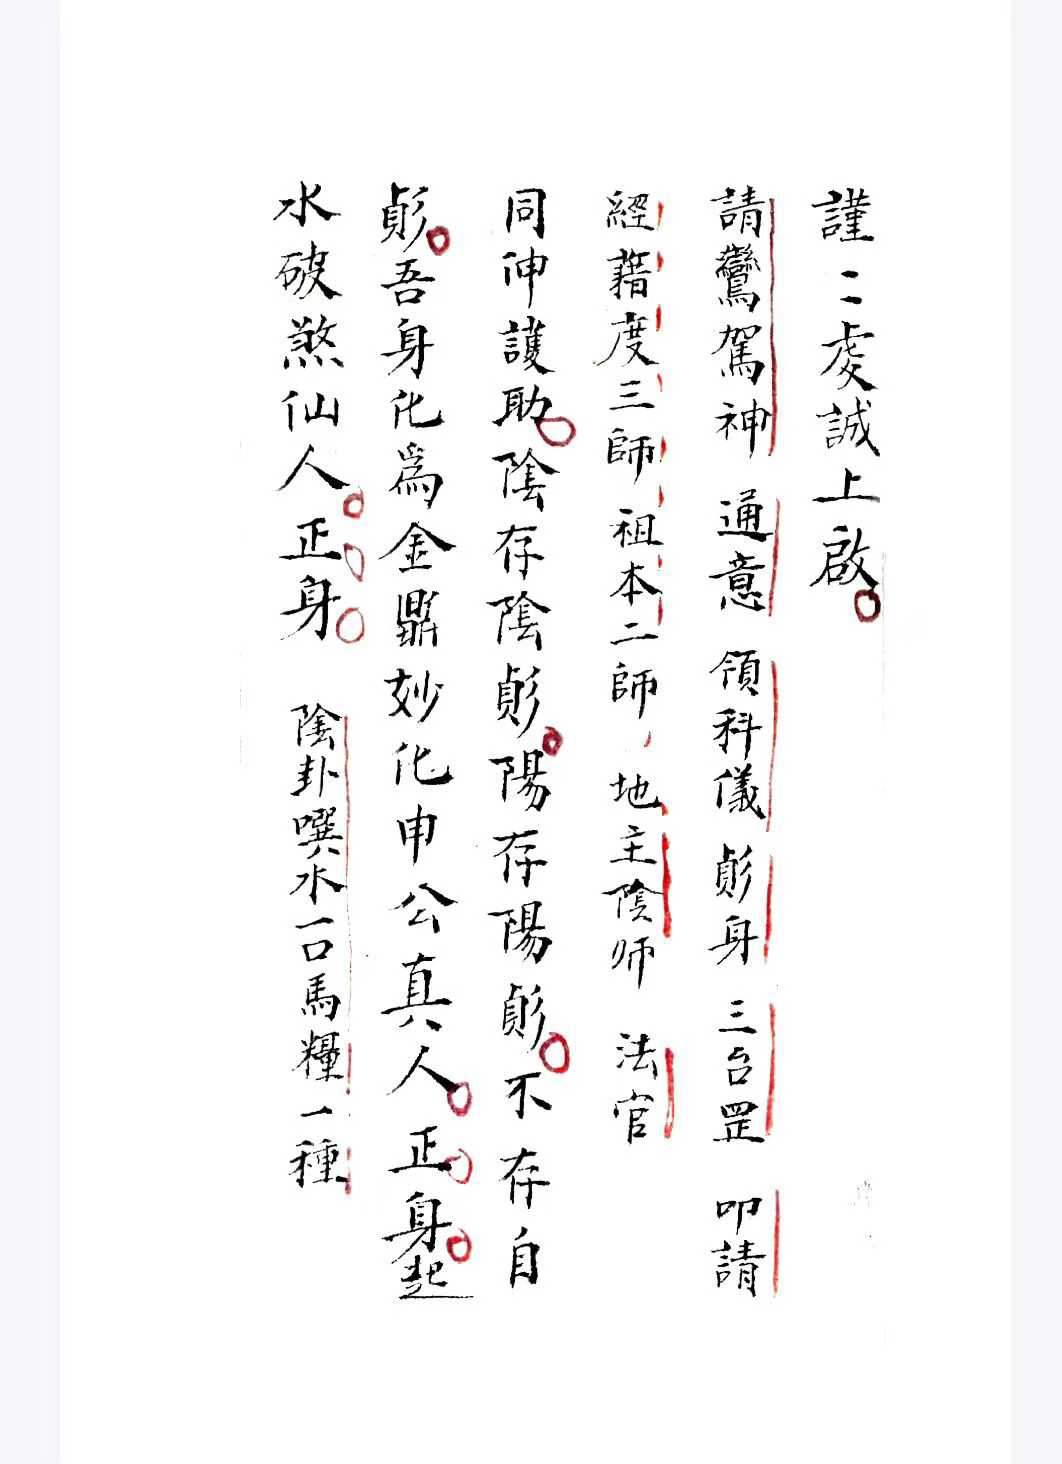 謹〻虔誠上啟
請鸞駕神 通意 領科儀 鄖身 三台罡 叩請
經籍度三師祖本二師 地主陰师 法官
同伸護助陰存陰 陽存陽 不存自
吾身化為金鼎妙化申公真人正身起
水破煞仙人正身 陰卦噀水一口馬糧一種